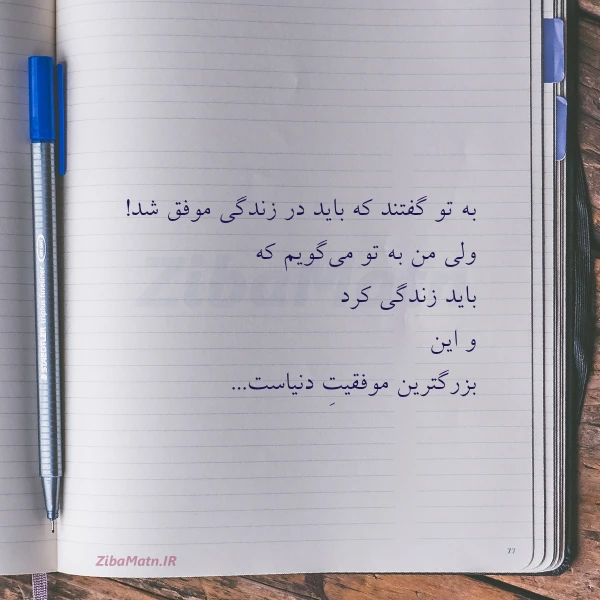 به تو گفتند که باید در زندگی موفق شد!
ولی من به تو می‌گویم که
باید زندگی کرد
و این
بزرگترین موفقیتِ دنیاست...
ZibaMatn.IR